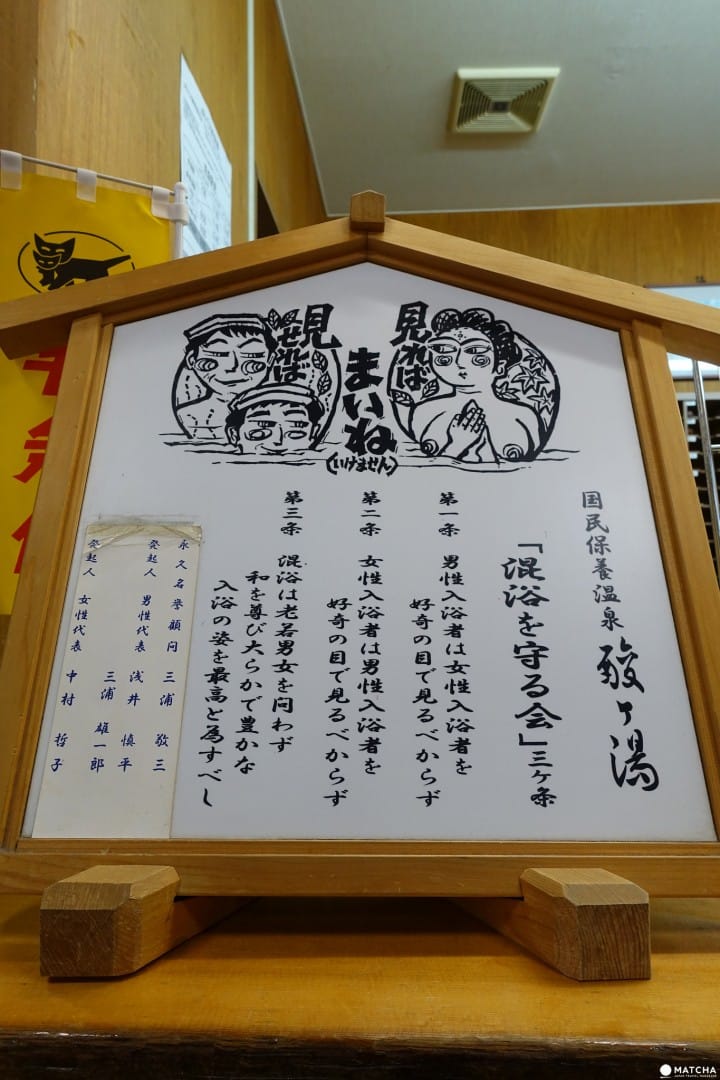 見れば
まいね
(いけません)
見せれば
国民保養温泉 酸ヶ湯
「混浴を守る会」三ヶ条
第一条 男性入浴者は女性入浴者を
好奇の目で見るべからず
第二条 女性入浴者は男性入浴者を
好奇の目で見るべからず
第三条 混浴は老若男女を問わず
和を尊び大らかで豊かな
入浴の姿を最高と為すべし
永久名誉顧問 三浦 敬三
発起人 男性代表 浅井 慎平
三浦 雄一郎
発起人 女性代表 中村 哲子
MATCHA